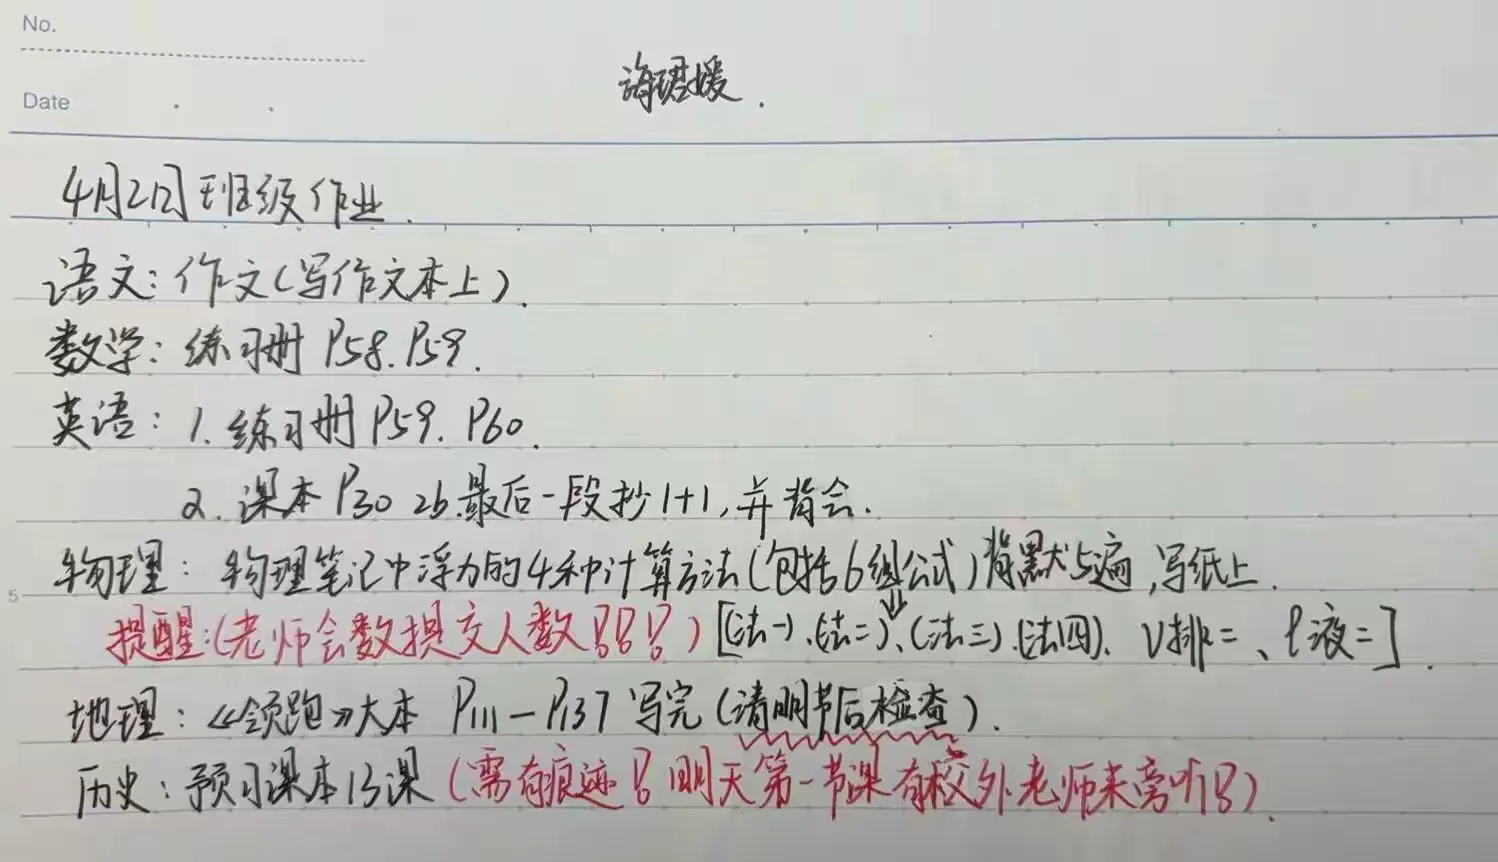 No.
Date
4月2日班级作业.
语文：作文（写作文本上）.
数学：练习册 P58. P59.
英语：1. 练习册 P59. P60.
2. 课本 P30 2b.最后一段抄1+1, 并背会.
物理：物理笔记中浮力的4种计算方法(包括6组公式)背默5遍,写纸上.
提醒:(老师会数提交人数!!!) [(法一)、(法二)、(法三)、(法四)、V排=、ρ液=].
地理：《领跑》大本 P111—P137 写完 (清明节后检查).
5
历史：预习课本13课 (需有痕迹! 明天第一节课有校外老师来旁听!!).